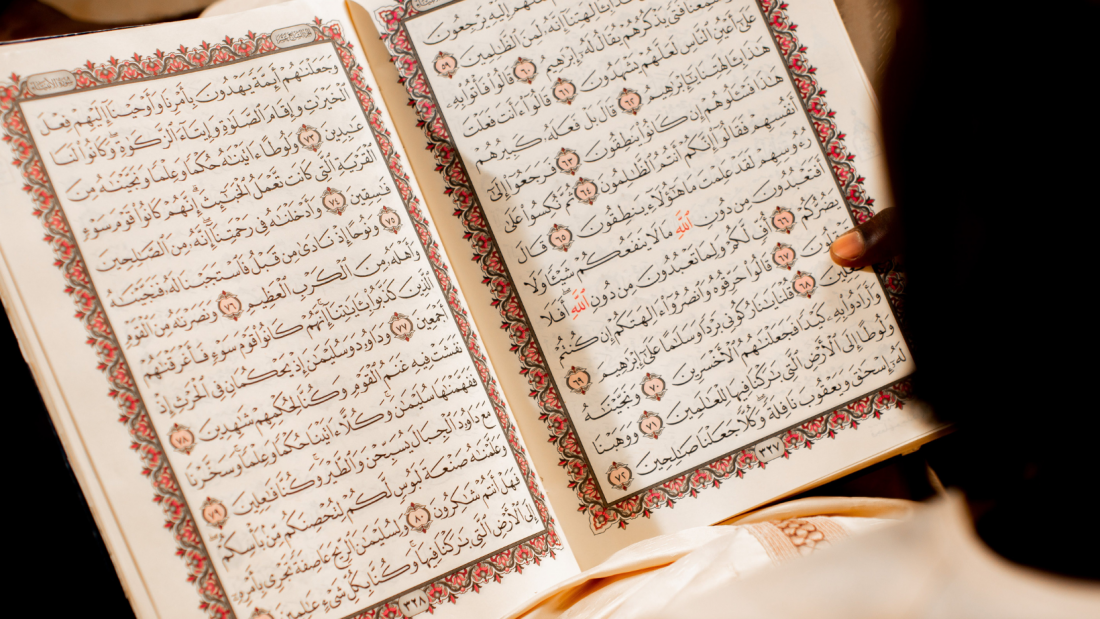 إِلَيْهِ يَرْجِعُونَ
بِـَٔالِهَتِنَآ إِنَّهُۥ لَمِنَ ٱلظَّٰلِمِينَ
٥٩ سَمِعْنَا فَتًى يَذْكُرُهُمْ يُقَالُ لَهُۥٓ إِبْرَٰهِيمُ ٦٠ قَالُوا۟ فَأْتُوا۟ بِهِۦ
عَلَىٰٓ أَعْيُنِ ٱلنَّاسِ لَعَلَّهُمْ يَشْهَدُونَ ٦١ قَالُوٓا۟ ءَأَنتَ فَعَلْتَ
هَٰذَا بِـَٔالِهَتِنَا يَٰٓإِبْرَٰهِيمُ ٦٢ قَالَ بَلْ فَعَلَهُۥ كَبِيرُهُمْ
هَٰذَا فَسْـَٔلُوهُمْ إِن كَانُوا۟ يَنطِقُونَ ٦٣ فَرَجَعُوٓا۟ إِلَىٰٓ
أَنفُسِهِمْ فَقَالُوٓا۟ إِنَّكُمْ أَنتُمُ ٱلظَّٰلِمُونَ ٦٤ ثُمَّ نُكِسُوا۟ عَلَىٰ
رُءُوسِهِمْ لَقَدْ عَلِمْتَ مَا هَٰٓؤُلَآءِ يَنطِقُونَ ٦٥ قَالَ
أَفَتَعْبُدُونَ مِن دُونِ ٱللَّهِ مَا لَا يَنفَعُكُمْ شَيْـًٔا وَلَا
يَضُرُّكُمْ ٦٦ أُفٍّ لَّكُمْ وَلِمَا تَعْبُدُونَ مِن دُونِ ٱللَّهِ أَفَلَا
٦٧ قَالُوا۟ حَرِّقُوهُ وَٱنصُرُوٓا۟ ءَالِهَتَكُمْ إِن كُنتُمْ
٦٨ قُلْنَا يَٰنَارُ كُونِى بَرْدًا وَسَلَٰمًا عَلَىٰٓ إِبْرَٰهِيمَ ٦٩
وَأَرَادُوا۟ بِهِۦ كَيْدًا فَجَعَلْنَٰهُمُ ٱلْأَخْسَرِينَ ٧٠ وَنَجَّيْنَٰهُ
وَلُوطًا إِلَى ٱلْأَرْضِ ٱلَّتِى بَٰرَكْنَا فِيهَا لِلْعَٰلَمِينَ ٧١ وَوَهَبْنَا
لَهُۥٓ إِسْحَٰقَ وَيَعْقُوبَ نَافِلَةً وَكُلًّا جَعَلْنَا صَٰلِحِينَ ٧٢
٣٢٧
وَجَعَلْنَٰهُمْ أَئِمَّةً يَهْدُونَ بِأَمْرِنَا وَأَوْحَيْنَآ إِلَيْهِمْ فِعْلَ
ٱلْخَيْرَٰتِ وَإِقَامَ ٱلصَّلَوٰةِ وَإِيتَآءَ ٱلزَّكَوٰةِ وَكَانُوا۟ لَنَا
عَٰبِدِينَ ٧٣ وَلُوطًا ءَاتَيْنَٰهُ حُكْمًا وَعِلْمًا وَنَجَّيْنَٰهُ مِنَ
ٱلْقَرْيَةِ ٱلَّتِى كَانَت تَّعْمَلُ ٱلْخَبَٰٓئِثَ إِنَّهُمْ كَانُوا۟ قَوْمَ سَوْءٍ
فَٰسِقِينَ ٧٤ وَأَدْخَلْنَٰهُ فِى رَحْمَتِنَآ إِنَّهُۥ مِنَ ٱلصَّٰلِحِينَ
٧٥ وَنُوحًا إِذْ نَادَىٰ مِن قَبْلُ فَٱسْتَجَبْنَا لَهُۥ فَنَجَّيْنَٰهُ
وَأَهْلَهُۥ مِنَ ٱلْكَرْبِ ٱلْعَظِيمِ ٧٦ وَنَصَرْنَٰهُ مِنَ ٱلْقَوْمِ
ٱلَّذِينَ كَذَّبُوا۟ بِـَٔايَٰتِنَآ إِنَّهُمْ كَانُوا۟ قَوْمَ سَوْءٍ فَأَغْرَقْنَٰهُمْ
أَجْمَعِينَ ٧٧ وَدَاوُۥدَ وَسُلَيْمَٰنَ إِذْ يَحْكُمَانِ فِى ٱلْحَرْثِ إِذْ
نَفَشَتْ فِيهِ غَنَمُ ٱلْقَوْمِ وَكُنَّا لِحُكْمِهِمْ شَٰهِدِينَ ٧٨
فَفَهَّمْنَٰهَا سُلَيْمَٰنَ وَكُلًّا ءَاتَيْنَا حُكْمًا وَعِلْمًا وَسَخَّرْنَا
مَعَ دَاوُۥدَ ٱلْجِبَالَ يُسَبِّحْنَ وَٱلطَّيْرَ وَكُنَّا فَٰعِلِينَ ٧٩
وَعَلَّمْنَٰهُ صَنْعَةَ لَبُوسٍ لَّكُمْ لِتُحْصِنَكُم مِّنۢ بَأْسِكُمْ
فَهَلْ أَنتُمْ شَٰكِرُونَ ٨٠ وَلِسُلَيْمَٰنَ ٱلرِّيحَ عَاصِفَةً تَجْرِى بِأَمْرِهِۦٓ
إِلَى ٱلْأَرْضِ ٱلَّتِى بَٰرَكْنَا فِيهَا وَكُنَّا بِكُلِّ شَىْءٍ عَٰلِمِينَ
٣٢٨